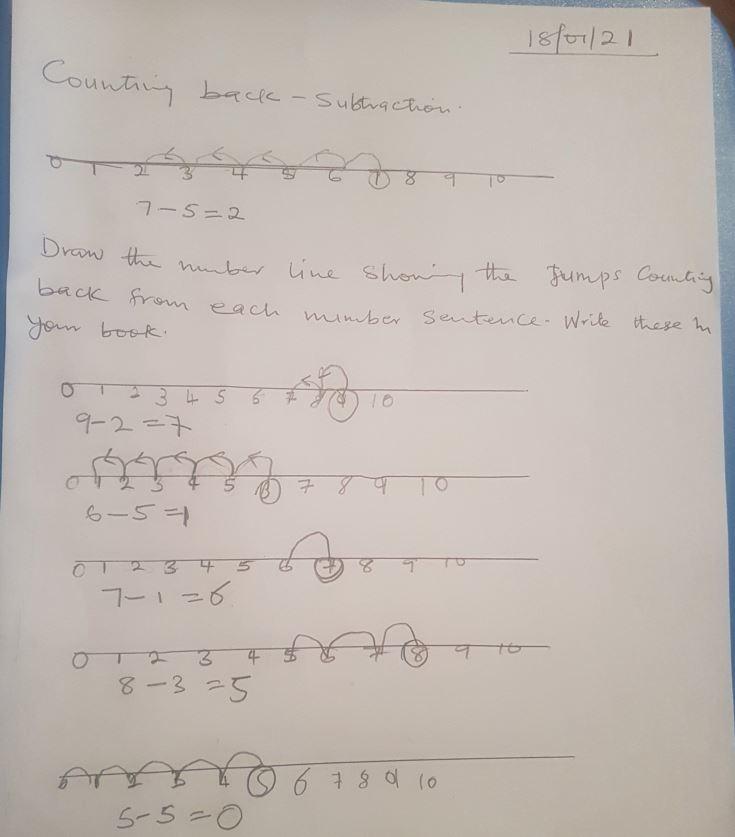 18/01/21
Counting back - Subtraction.
0 1 2 3 4 5 6 7 8 9 10
7-5=2
Draw the number line showing the Jumps Counting
back from each number sentence. Write these in
your book.
0 1 2 3 4 5 6 7 8 9 10
9-2=7
0 1 2 3 4 5 6 7 8 9 10
6-5=1
0 1 2 3 4 5 6 7 8 9 10
7-1=6
0 1 2 3 4 5 6 7 8 9 10
8-3=5
0 1 2 3 4 5 6 7 8 9 10
5-5=0